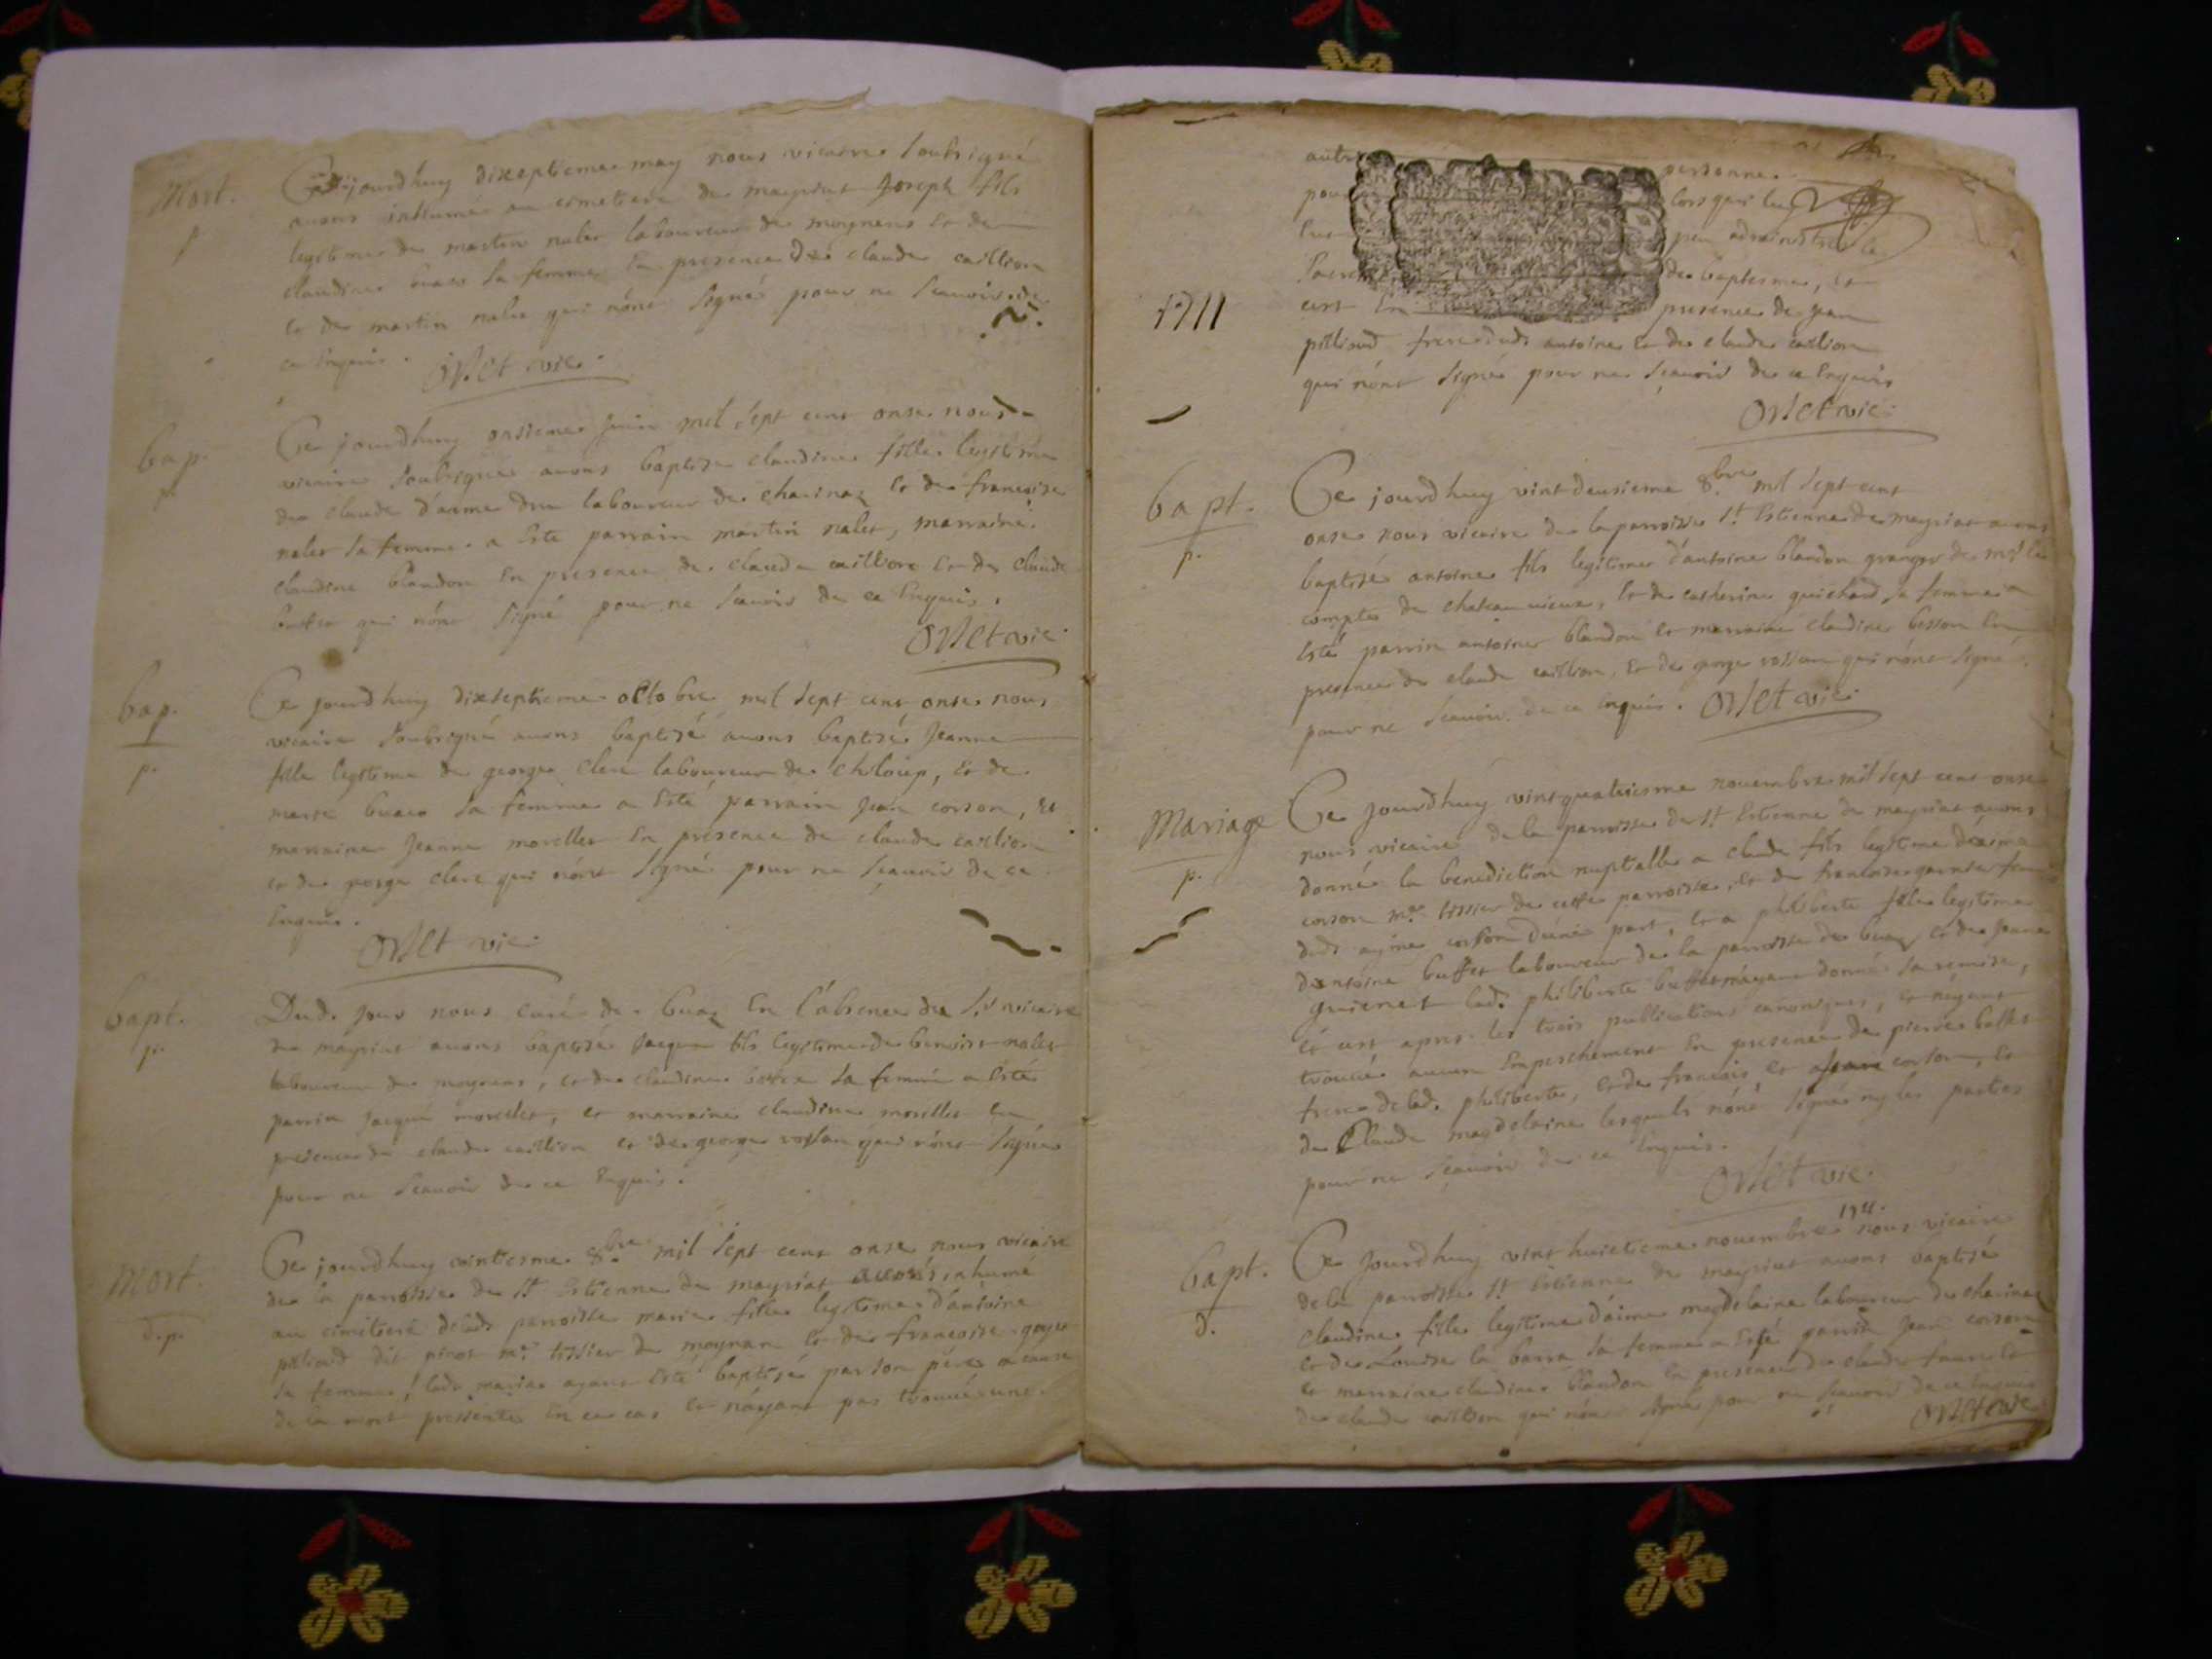 Mort.
Ce jourdhuy dixseptieme may nous vicaire soubsigné
avons inhumé au cimetiere de mayriat Joseph fils
legitime de martin nalet laboureur de moynens et de
claudine buaco sa femme En presence de claude caillion
et de martin nalet qui nónt signés pour ne scauoir de
ce Enquis.
Orset vic.
bap.
p.
Ce jourdhuy onsieme Juin mil sept cent onse nous
vicaire soubsigné auons baptisé claudine fille legitime
de claude d'aime laboureur de charinaz et de francoise
nalet sa femme a Esté parrain martin nalet, marraine
claudine blandon En presence de claude caillion et de claude
qui nónt signé pour ne scauoir de ce Enquis.
Orset vic.
bap.
p.
Ce jourdhuy dixseptieme octobre mil sept cent onse nous
vicaire soubsigné auons baptisé auons baptisé Jeanne
fille legitime de george clerc laboureur de chiloup, et de
marie buaco sa femme a Esté parrain Jean corson, et
marraine Jeanne morellet En presence de claude caillion
et de george clerc qui nónt signé pour ne scauoir de ce
Enquis.
Orset vic.
bapt.
p.
Dud. jour nous curé de buaz En l'absence du Sr vicaire
de mayriat auons baptisé Jacque fils legitime de benoist nalet
laboureur de moynens, et de claudine sa femme a Esté
parrin Jacque morellet, et marraine claudine morellet En
presence de claude caillion et de george vossan qui nónt signé
pour ne scauoir de ce Enquis.
Mort.
d.p.
Ce jourdhuy vintiesme 8.bre mil sept cent onse nous vicaire
de la parroisse de St Estienne de mayriat auons inhumé
au cimitiere de lad. parroisse marie fille legitime d'antoine
pilliond dit pirot mre tissier de moynan et de francoise
sa femme, lade marie ayant Esté baptisé par son pere a cause
de la mort pressente En ce cas et náyant pas trouué une
autre personne
pour lors qui luy
eut peu administrer le
Sacrement de baptesme, et
cest En presence de jean
pilliond frere dud. antoine et de claude caillion
qui nónt signé pour ne scauoir de ce Enquis
Orset vic.
1711
bapt.
p.
Ce jourdhuy vint deusieme 8.bre mil sept cent
onse nous vicaire de la parroisse St Estienne de mayriat auons
baptisé antoine fils legitime d'antoine blandon granger de mr le
compte de chateauuieux, et de catherine guichard sa femme a
Esté parrin antoine blandon et marraine claudine besson En
presence de claude caillion, et de george vossan qui nónt signé
pour ne scauoir de ce Enquis. Orset vic.
Mariage
p.
Ce jourdhuy vintquatriesme nouembre mil sept cent onse
nous vicaire de la parroisse de St Estienne de mayriat auons
donné la benediction nuptialle a claude fils legitime d'aimé
corson mre tissier de cette parroisse, et de francoise femme
dud. ayme corson d'une part, et a philiberte fille legitime
d'antoine buffet laboureur de la parroisse de buaz et de Jeanne
lad. philiberte buffet donné sa remise,
et cest apres les trois publications canoniques, et náyant
trouué aucun Empeschement En presence de pierre buffet
frere de lad. philiberte, et de francois, et Jean corson, et
de Claude magdelaine lesquels nónt signés ny les parties
pour ne scauoir de ce Enquis.
Orset vic.
bapt.
d.
Ce Jourdhuy vint huictieme nouembre 1711. nous vicaire
de la parroisse St Estienne de mayriat auons baptisé
claudine fille legitime d'aime magdelaine laboureur de charinaz
et de Louise la barra sa femme a Esté parrin Jean corson
et marraine claudine blandon En presence de claude faure et
de claude caillion qui nónt signé pour ne scauoir de ce Enquis
Orset vic.